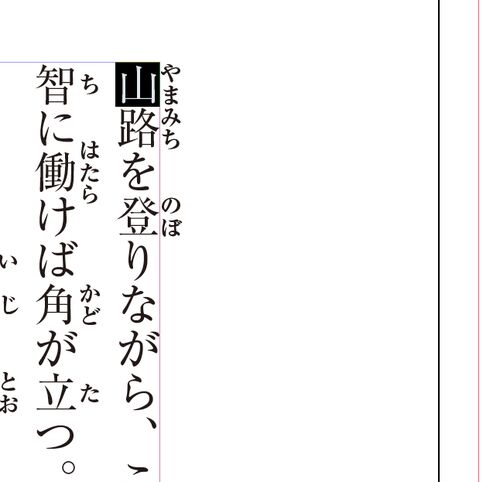 山路を登りながら、
やまみち のぼ
智に働けば角が立つ。
ち はたら かど た
い じ とお